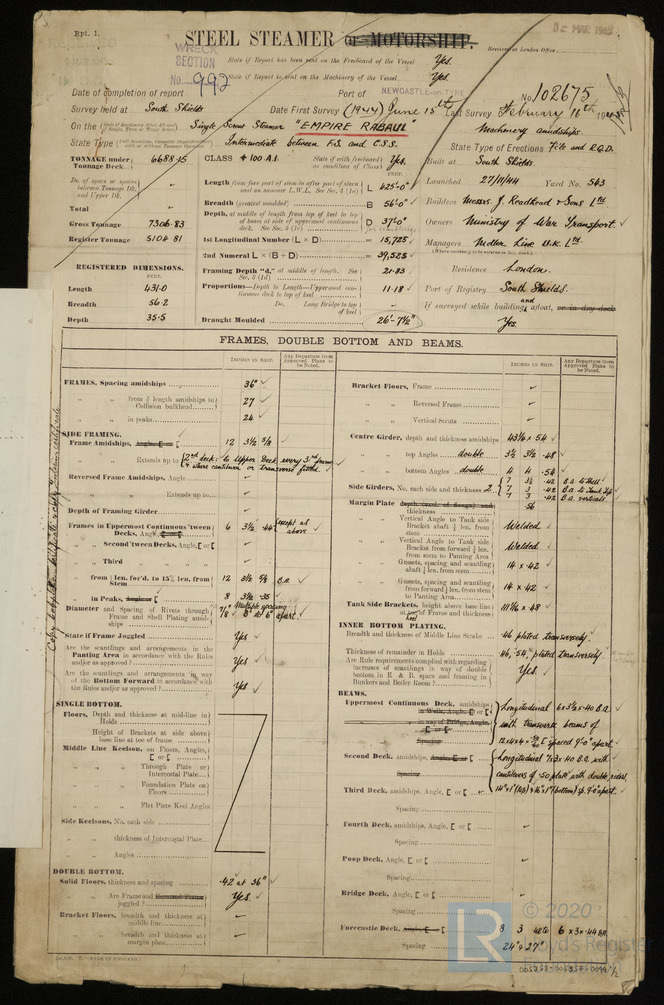 Rpt. 1.
STEEL STEAMER or MOTORSHIP.
WRECK SECTION
No. 992
Received at London Office
State if Report has been sent on the Freeboard of the Vessel Yes.
State if Report is sent on the Machinery of the Vessel Yes.
Date of completion of report
Port of NEWCASTLE-ON-TYNE
No. 102675
Survey held at South Shields
Date First Survey (1944) June 15th
Last Survey February 10th
On the Single Screw Steamer "EMPIRE RABAUL"
Machinery amidships.
State Type Intermediate between F.S. and C.S.S.
State Type of Erections F'cle and R.Q.D.
TONNAGE under Tonnage Deck 6688.15
CLASS + 100.A.1.
State if with freeboard as condition of Class Yes.
Built at South Shields.
Launched 27/11/44 Yard No. 563
Builders Messrs. J. Readhead & Sons Ltd
Owners Ministry of War Transport.
Residence London.
Port of Registry South Shields.
If surveyed while building and afloat, or in dry dock Yes.
Do. of space or spaces between Tonnage Dk. and Upper Dk.
Total
Gross Tonnage 7306.83
Register Tonnage 5104.81
REGISTERED DIMENSIONS.
FEET.
Length 431.0
Breadth 56.2
Depth 35.5
Length from fore part of stem to after part of stern post on summer L.W.L. See Sec. 3 (1c) L 425'-0"
Breadth (greatest moulded) B 56'-0"
Depth, at middle of length from top of keel to top of beam at side of uppermost continuous deck. See Sec. 3 (1c) D 37'-0"
1st Longitudinal Number (L × D) = 15,725
2nd Numeral L × (B + D) = 39,525
Framing Depth "d," at middle of length. See Sec. 3 (1d) 21.83
Proportions—Depth to Length—Uppermost continuous deck to top of keel 11.18
Do. Long Bridge to top of keel
Draught Moulded 26'-7½"
FRAMES, DOUBLE BOTTOM AND BEAMS.
INCHES IN SHIP.
Any Departure from Approved Plans to be Noted.
FRAMES, Spacing amidships 36"
" " from ⅗ length amidships to Collision bulkhead 27
" " in peaks 24
SIDE FRAMING.
Frame Amidships, Angle, E or [ 12 3½ 5/8
" " Extends up to 2nd deck: to Upper Deck every 3rd frame & where cantilever or transverse fitted.
Reversed Frame Amidships, Angle
" " Extends up to
Depth of Framing Girder
Frames in Uppermost Continuous 'tween Decks, Angle, E or [ 6 3½ .44 except as above
" Second 'tween Decks, Angle, E or [
" Third " " "
" from ¼ len. for'd. to 15% len. from Stem 12 3½ 5/8 B.A.
" in Peaks, Angle or [ 8 3½ .35
Diameter and Spacing of Rivets through Frame and Shell Plating amidships 7/8
State if Frame Joggled Yes
Are the scantlings and arrangements in the Panting Area in accordance with the Rules and/or as approved? Yes
Are the scantlings and arrangements in way of the Bottom Forward in accordance with the Rules and/or as approved? Yes
SINGLE BOTTOM.
Floors, Depth and thickness at mid-line in Holds
Height of Brackets at side above base line at toe of frame
Middle Line Keelson, on Floors, Angles, E or [
" " Through Plate or Intercostal Plate
" " Foundation Plate on Floors
" " Flat Plate Keel Angles
Side Keelsons, No. each side
" " thickness of Intercostal Plate
" " Angles
DOUBLE BOTTOM.
Solid Floors, thickness and spacing .42 at 36"
" " Are Frame and Reversed Frame joggled? Yes.
Bracket Floors, breadth and thickness at middle line
" " breadth and thickness at margin plate
Bracket Floors, Frame
" " Reversed Frame
" " Vertical Struts
Centre Girder, depth and thickness amidships 43½ × .54
" " top Angles double 3½ 3½ .48
" " bottom Angles double 4 4 .54
Side Girders, No. each side and thickness 2 7 3½ .42 B.A. to Shell
7 3 .42 B.A. to Tank Top
7 3 .42 B.A. verticals
Margin Plate thickness .56
Vertical Angle to Tank side Bracket abaft ¼ len. from stem Welded
Vertical Angle to Tank side Bracket from forward ¼ len. from stem to Panting Area Welded
Gussets, spacing and scantling abaft ¼ len. from stem 14 × .42
Gussets, spacing and scantling from forward ¼ len. from stem to Panting Area 14 × .42
Tank Side Brackets, height above base line at toe of Frame and thickness 111½ × .48
INNER BOTTOM PLATING.
Breadth and thickness of Middle Line Strake .46 plated transversely.
Thickness of remainder in Holds .46, .54, plated transversely.
Are Rule requirements complied with regarding increases of scantlings in way of double bottom in E & B. space and framing in Bunkers and Boiler Room? Yes.
BEAMS.
Uppermost Continuous Deck, amidships Longitudinal 6×3½×.40 B.A. with transverse beams of spaced 9'-0" apart.
Second Deck, amidships, Angle, E or [ Longitudinal 7×3×.40 B.A. with cantilevers of .50 plate with double
Spacing
Third Deck, amidships, Angle, E or [
Spacing
Fourth Deck, amidships, Angle, E or [
Spacing
Poop Deck, Angle, E or [
Spacing
Bridge Deck, Angle, E or [
Spacing
Forecastle Deck, Angle, E or [ 8 3 6 × 3 × .44 BA.
Spacing 24" & 27"
LR © 2020
Lloyd's Register